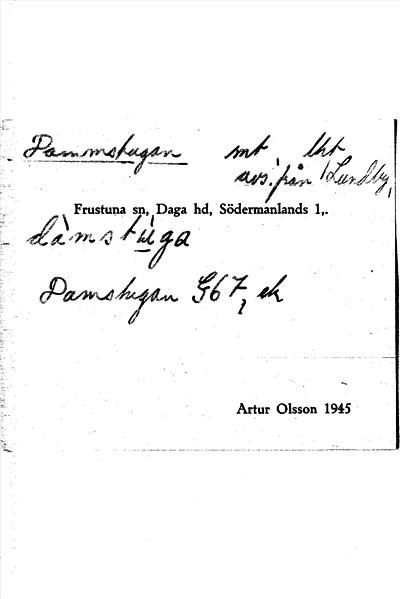 Dammstugan mt, lht
avs. från Lundby,
Frustuna sn, Daga hd, Södermanlands l,.
dàmstùga
Damstugan G67, ek
Artur Olsson 1945